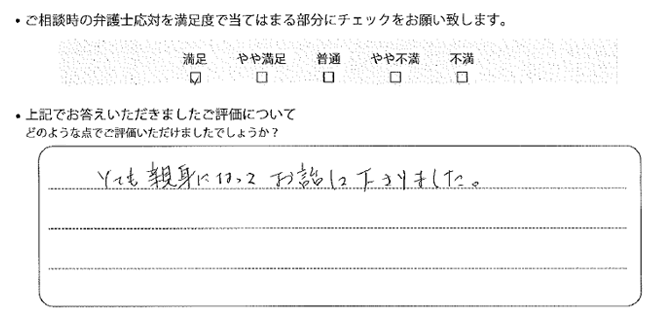 ・ご相談時の弁護士応対を満足度で当てはまる部分にチェックをお願い致します。
満足 やや満足 普通 やや不満 不満
☑ ☐ ☐ ☐ ☐
・上記でお答えいただきましたご評価について
どのような点でご評価いただけましたでしょうか？
とても親身になって お話して下さりました。